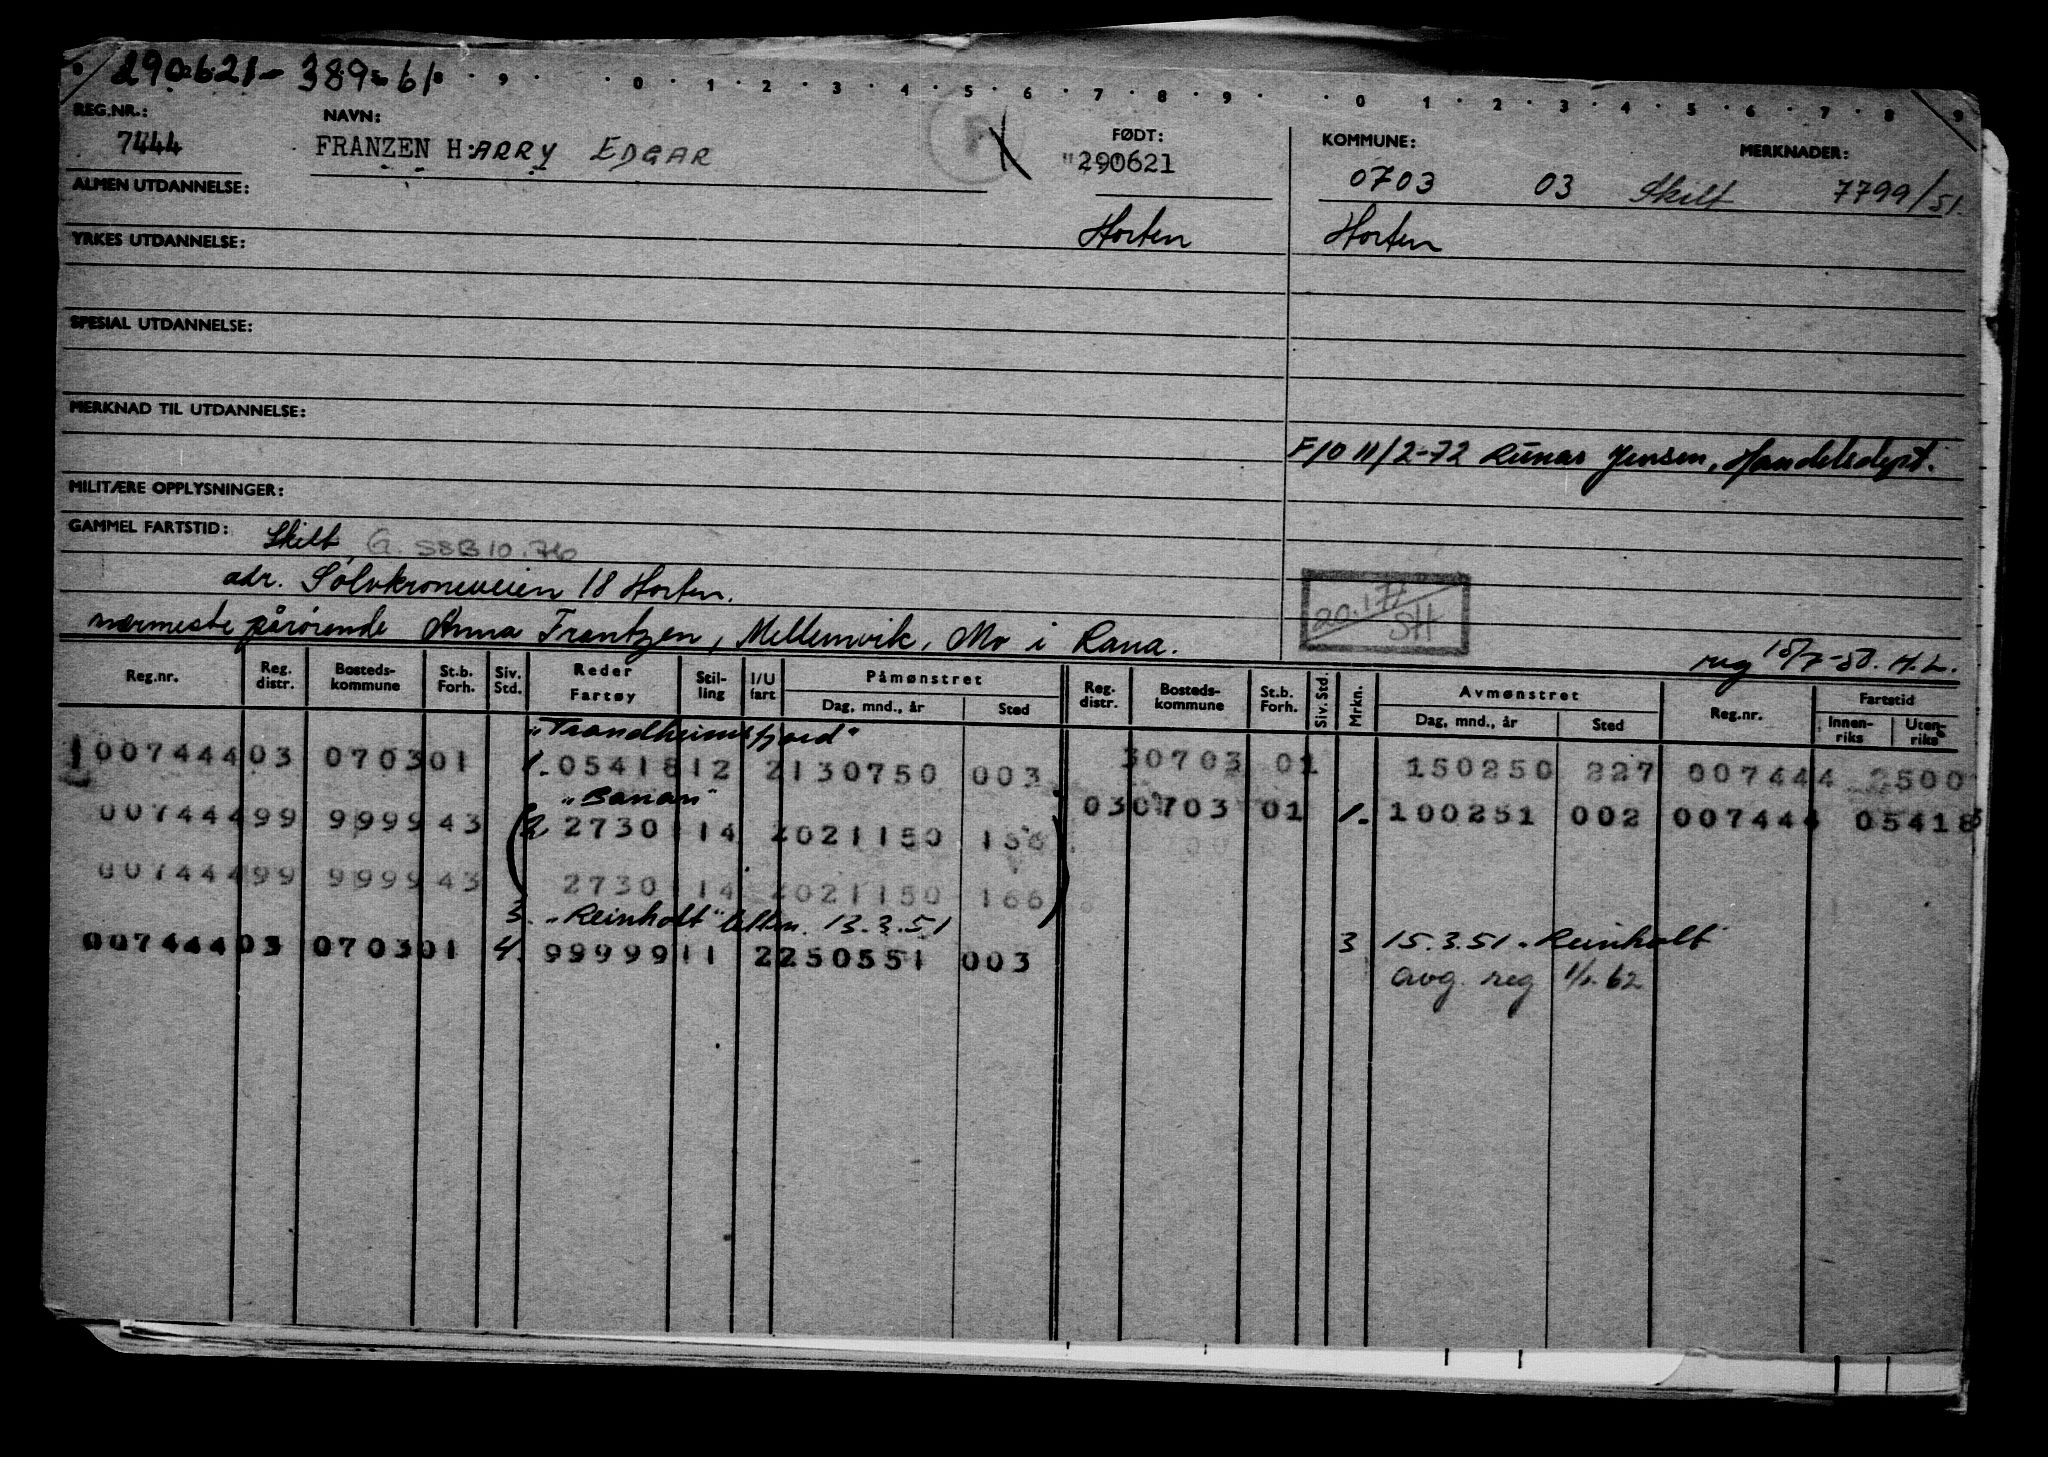 290621-389-61 9 0 1 2 3 4 5 6 7 8 9 0 1 2 3 4 5 6 7 8 9
REG.NR.: NAVN: FØDT: KOMMUNE: MERKNADER:
7444 FRANZEN HARRY EDGAR "290621 0703 03 Skilt 7799/51.
ALMEN UTDANNELSE:
YRKES UTDANNELSE: Horten Horten
SPESIAL UTDANNELSE:
MERKNAD TIL UTDANNELSE:
F/O 11/2-72 Runar Jensen, Handelsdept.
MILITÆRE OPPLYSNINGER:
GAMMEL FARTSTID: Skilt, G. SSB 10.76
adr. Sølvkroneveien 18 Horten.
20.1.77 SH
nærmeste pårørende Anna Frantzen, Mellemvik, Mo i Rana.
reg 15/7-50. H.L.
Reg.nr. Reg. distr. Bosteds-kommune St.b. Forh. Siv. Std. Reder Fartøy Stil-ling I/U fart Påmønstret Dag, mnd., år Sted Reg. distr. Bosteds-kommune St.b. Forh. Siv. Std. Mrkn. Avmønstret Dag, mnd., år Sted Reg.nr. Fartstid Innen-riks Uten-riks
"Trondheimsfjord"
007444 03 0703 01 1. 05418 12 2 130750 003 30703 01 150250 227 007444 2500
"Banan"
007444 99 9999 43 2 2730 14 2 021150 03 0703 01 1. 100251 002 007444 05418
007444 99 9999 43 2730 14 2 021150 166
3. "Reinholt" 13.3.51
007444 03 0703 01 4. 99999 11 2 250551 003 3 15.3.51 "Reinholt"
avg. reg 62